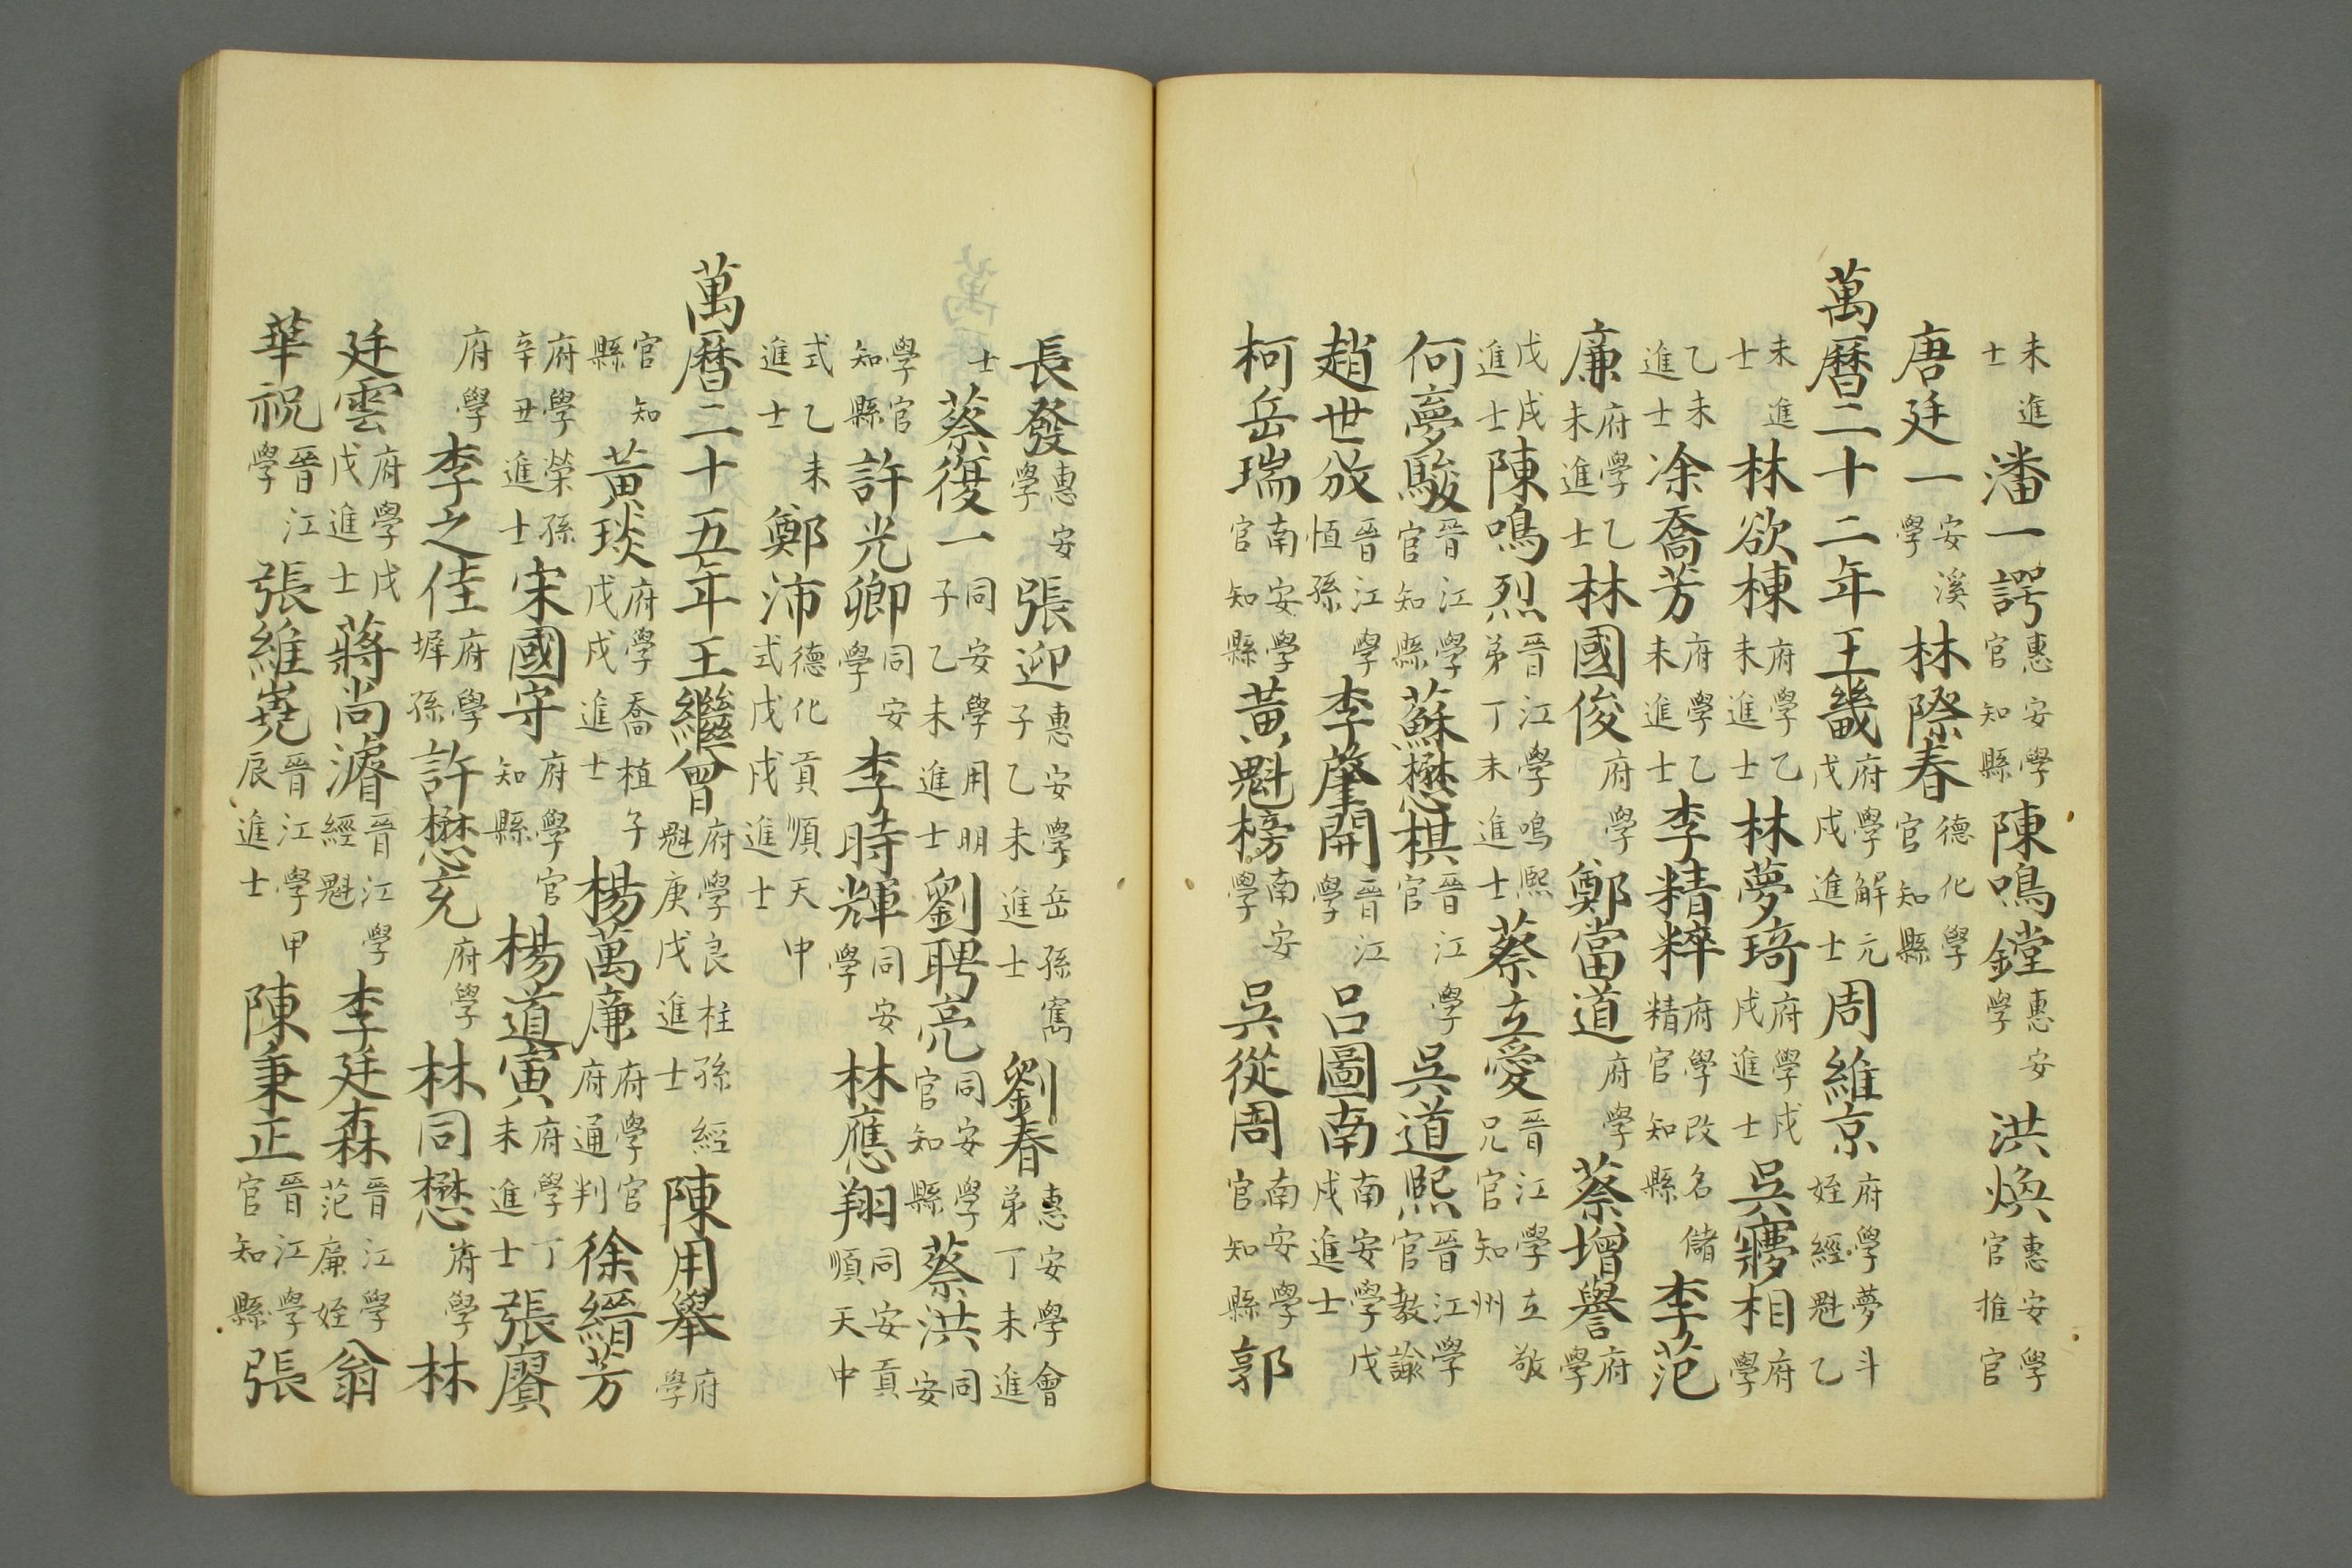 未進士潘一諤惠安學官知縣陳鳴鏜惠安學洪煥惠安學官推官
唐廷一安溪學林際春德化學官知縣
萬曆二十二年王畿府學解元戊戌進士周維京府學夢斗姪經魁乙
未進士林欲棟府學乙未進士林夢琦府學戊戌進士吳夢相府學
乙未進士凃喬芳府學乙未進士李精粹府學改名儲精官知縣李范
廉府學乙未進士林國俊府學鄭當道府學蔡增譽府學
戊戌進士陳鳴烈晉江學鳴熙弟丁未進士蔡立愛晉江學立敬兄官知州
何夢駿晉江學官知縣蘇懋棋晉江學官吳道熙晉江學官教諭
趙世放晉江學恒孫李肇開晉江學呂圖南南安學戊戌進士
柯岳瑞南安學官知縣黃魁榜南安學吳從周南安學官知縣郭
長發惠安學張迎惠安學岳孫寯子乙未進士劉春惠安學會弟丁未進
士蔡復一同安學用明子乙未進士劉聘亮同安學官知縣蔡洪同安
學官知縣許光卿同安學李時輝同安學林應翔同安貢順天中
式乙未進士鄭沛德化貢順天中式戊戌進士
萬曆二十五年王繼曾府學良柱孫經魁庚戌進士陳用舉府學
官知縣黃琰府學喬植子戊戌進士楊萬廉府學官府通判徐縉芳
府學榮孫辛丑進士宋國守府學官知縣楊道寅府學丁未進士張賡
府學李之佳府學墀孫許懋充府學林同懋府學林
廷雲府學戊戌進士蔣尚濬晉江學經魁李廷森晉江學范廉姪翁
華祝晉江學張維嶤晉江學甲辰進士陳秉正晉江學官知縣張